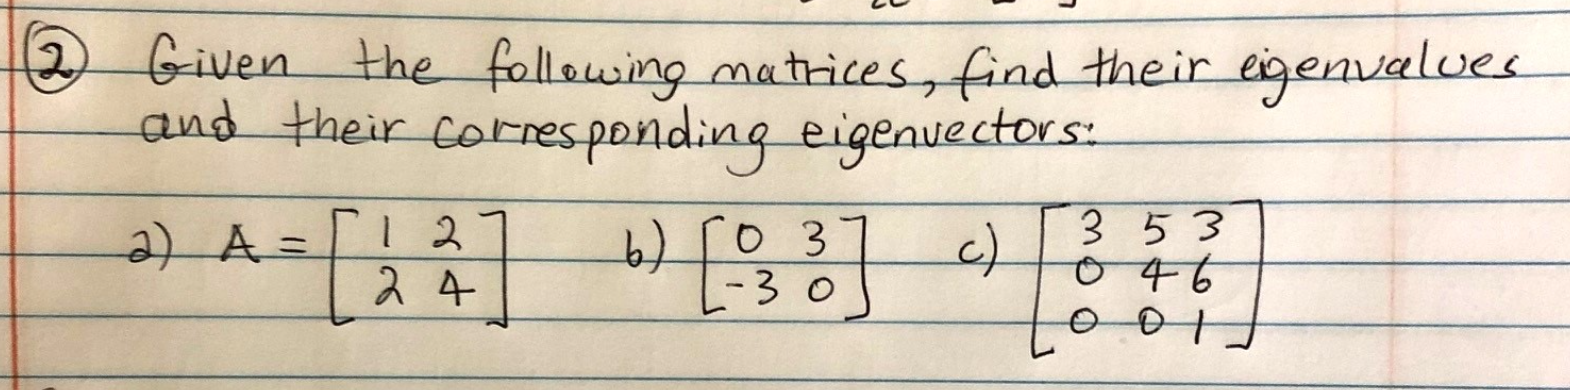 2 Given the following matrices, find their eigenvalues
and their corresponding eigenvectors:
a) A = [1 2 b) [0 3 c) [3 5 3
2 4] -3 0] 0 4 6
0 0 1]